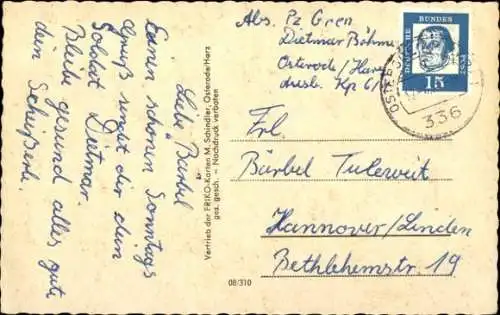 Liebe Bärbel
Einen schönen Sonntags
Gruß sendet dir dein
Soldat Dietmar.
Bleibe gesund alles gute
dein Scheißerle.
Vertrieb der FRIKO-Karten M. Schindler, Osterode/Harz
ges. gesch. – Nachdruck verboten
08/310
Abs. Pz Gren
Dietmar Böhme
Osterode/Harz
Kp 6/
DEUTSCHE BUNDESPOST
15
336
Frl.
Bärbel Tuleweit
Hannover/Linden
Bethlehemstr. 19